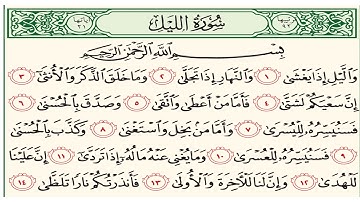 ترتيبها ٩٢ سورة الليل آياتها ٢١
بِسْمِ اللَّهِ الرَّحْمَٰنِ الرَّحِيمِ
وَالَّيْلِ إِذَا يَغْشَىٰ ١ وَالنَّهَارِ إِذَا تَجَلَّىٰ ٢ وَمَا خَلَقَ الذَّكَرَ وَالْأُنثَىٰ ٣
إِنَّ سَعْيَكُمْ لَشَتَّىٰ ٤ فَأَمَّا مَنْ أَعْطَىٰ وَاتَّقَىٰ ٥ وَصَدَّقَ بِالْحُسْنَىٰ ٦
فَسَنُيَسِّرُهُ لِلْيُسْرَىٰ ٧ وَأَمَّا مَنْ بَخِلَ وَاسْتَغْنَىٰ ٨ وَكَذَّبَ بِالْحُسْنَىٰ
٩ فَسَنُيَسِّرُهُ لِلْعُسْرَىٰ ١٠ وَمَا يُغْنِي عَنْهُ مَالُهُ إِذَا تَرَدَّىٰ ١١ إِنَّ عَلَيْنَا
لَلْهُدَىٰ ١٢ وَإِنَّ لَنَا لَلْآخِرَةَ وَالْأُولَىٰ ١٣ فَأَنذَرْتُكُمْ نَارًا تَلَظَّىٰ ١٤